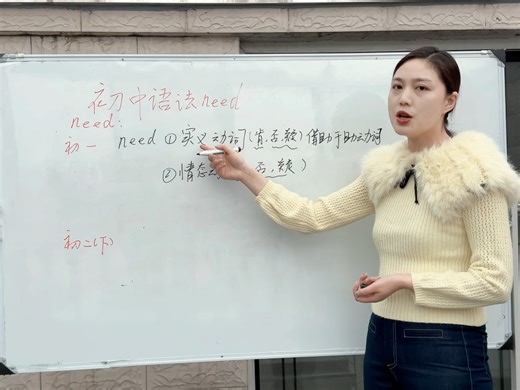 初中语 need
need:
初一 need ①实义动词(肯.否.疑)借助于助动词
②情态 否.疑)
初二(下)